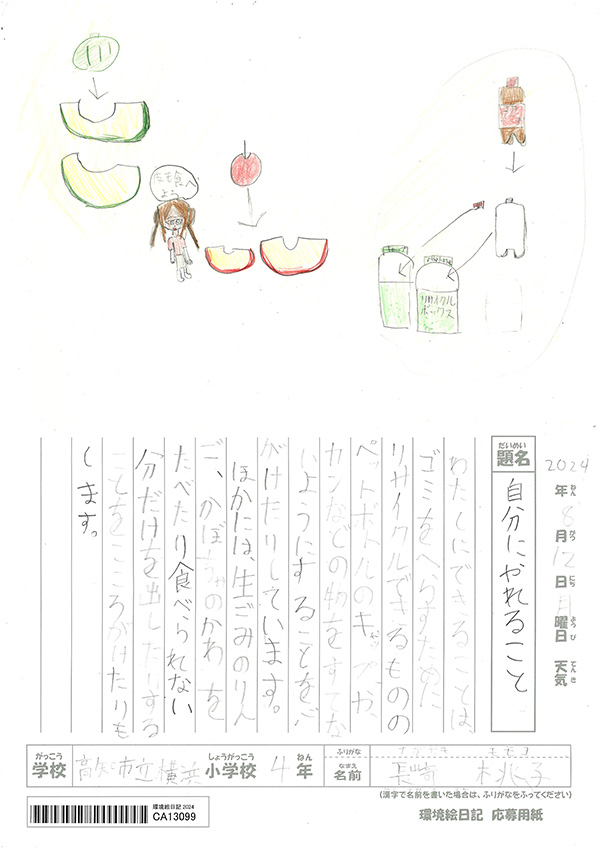 皮も食べ
よう
リサイクル
ボックス
2024年 8月12日 月曜日 天気
ねん がつ にち ようび てんき
だいめい
題名 自分にやれること
わたしにできることは、
ゴミをへらすために
リサイクルできるものの
ペットボトルのキャップや、
カンなどの物をすてな
いようにすることを心
がけたりしています。
ほかには、生ごみのりん
ご、かぼちゃのかわを
たべたり食べられない
分だけを出したりする
ことをこころがけたりも
します。
がっこう しょうがっこう ねん ふりがな ながさき ももこ
学校 高知市立横浜 小学校 4年 なまえ 名前 長崎 桃子
(漢字で名前を書いた場合は、ふりがなをふってください)
環境絵日記 2024
CA13099
環境絵日記 応募用紙